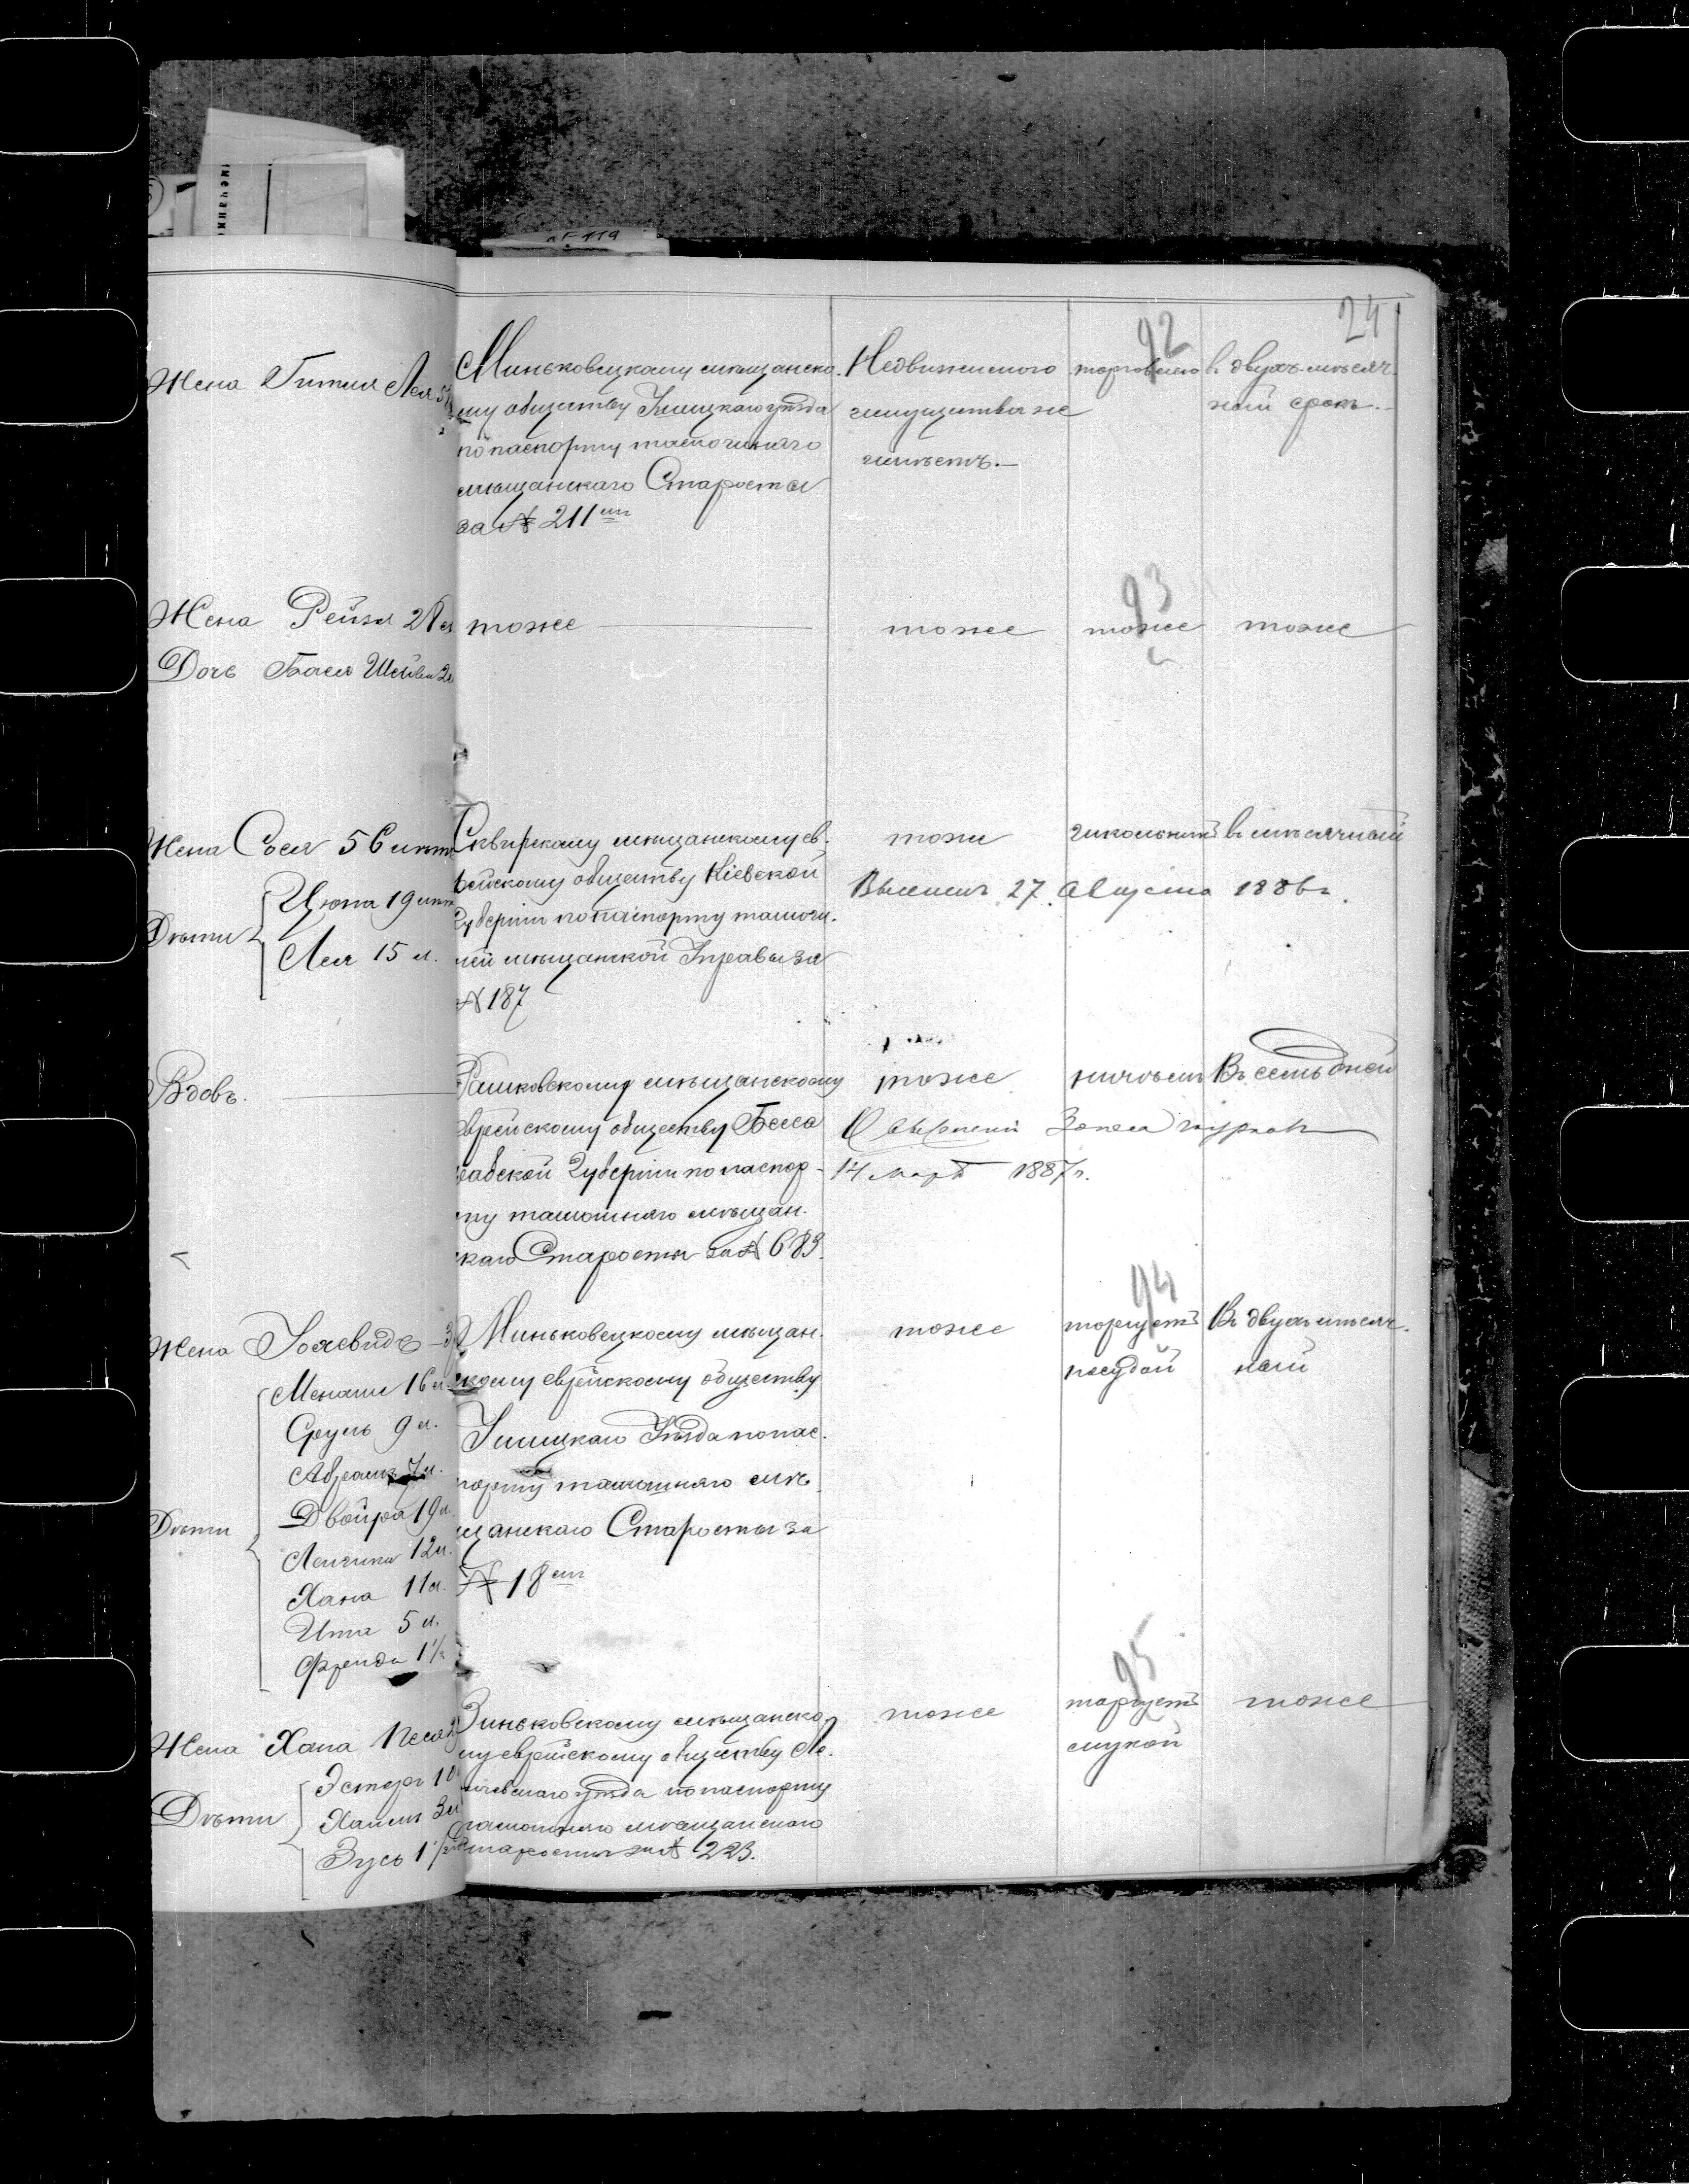 24
92
Жена Гитля Лея
Миньковецкому мѣщанско-
му обществу Ушицкаго уѣзда
по паспорту тамошняго
мѣщанскаго Старосты
за № 211
Недвижимого
имущества не
имѣетъ.—
торговлею
въ двухъ-мѣсяч
ный срокъ.—
93
Жена Рейзя
Дочь Бася Шейва
тоже
тоже
тоже
тоже
Жена Сося 56 лѣтъ
Дѣти
Цюпа 19 лѣтъ
Лея 15 л.
Сквирскому мѣщанскому ев-
рейскому обществу Кіевской
Губерніи по паспорту тамошн-
ей мѣщанской Управы за
№ 187
тоже
въ мѣсячный
27 Августа 1886 г.
Вдовъ.
Рашковскому мѣщанскому
еврейскому обществу Бесса
рабской Губерніи по паспор-
ту тамошняго мѣщан-
скаго Старосты за № 689.
тоже
Въ семь дней
14 Март 1887 г.
94
Жена
Дѣти
Менаши 16 л.
Сруль 9 л.
Абрамъ 7 л.
Двойра 19 л.
12 л.
Хана 11 л.
Ита 5 л.
Фрейда 1½
Миньковецкому мѣщан-
скому еврейскому обществу
Ушицкаго Уѣзда по пас-
порту тамошняго мѣ
щанскаго Старосты за
№ 18
тоже
торгуетъ
посудой
Въ двухъ мѣсяч-
ный
95
Жена Хана Песя
Дѣти
Эстеръ
Хаимъ
Зусь
Зиньковскому мѣщанско
му еврейскому обществу Ле-
тичевскаго уѣзда по паспорту
тамошняго мѣщанскаго
Старосты за № 223.
тоже
торгуетъ
мукой
тоже